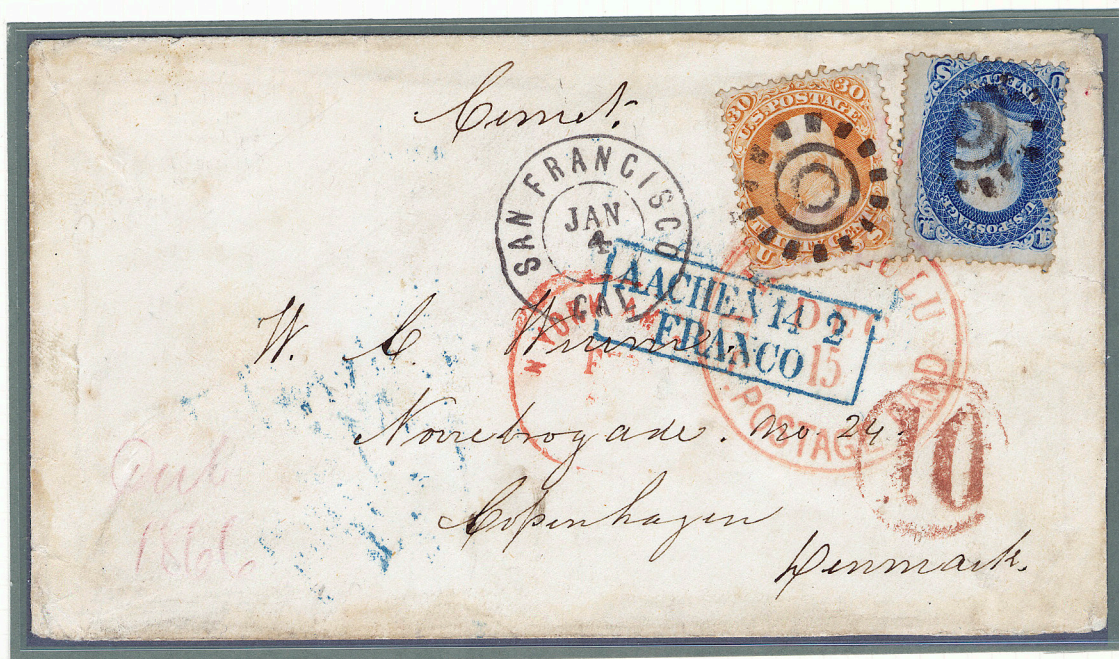 Comet.
30 30
U.S. POSTAGE
U.S. POSTAGE
SAN FRANCISCO
JAN
4
CAL
AACHEN 14 2
FRANCO
DEC
15
U.S. POSTAGE
N YORK
10
W. C. Wiume.
Norrebrogade. No 24.
Copenhagen
Denmark.
1866